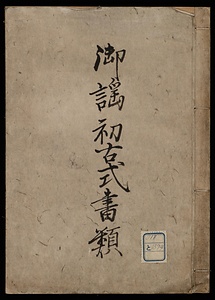 御謡初古式書類